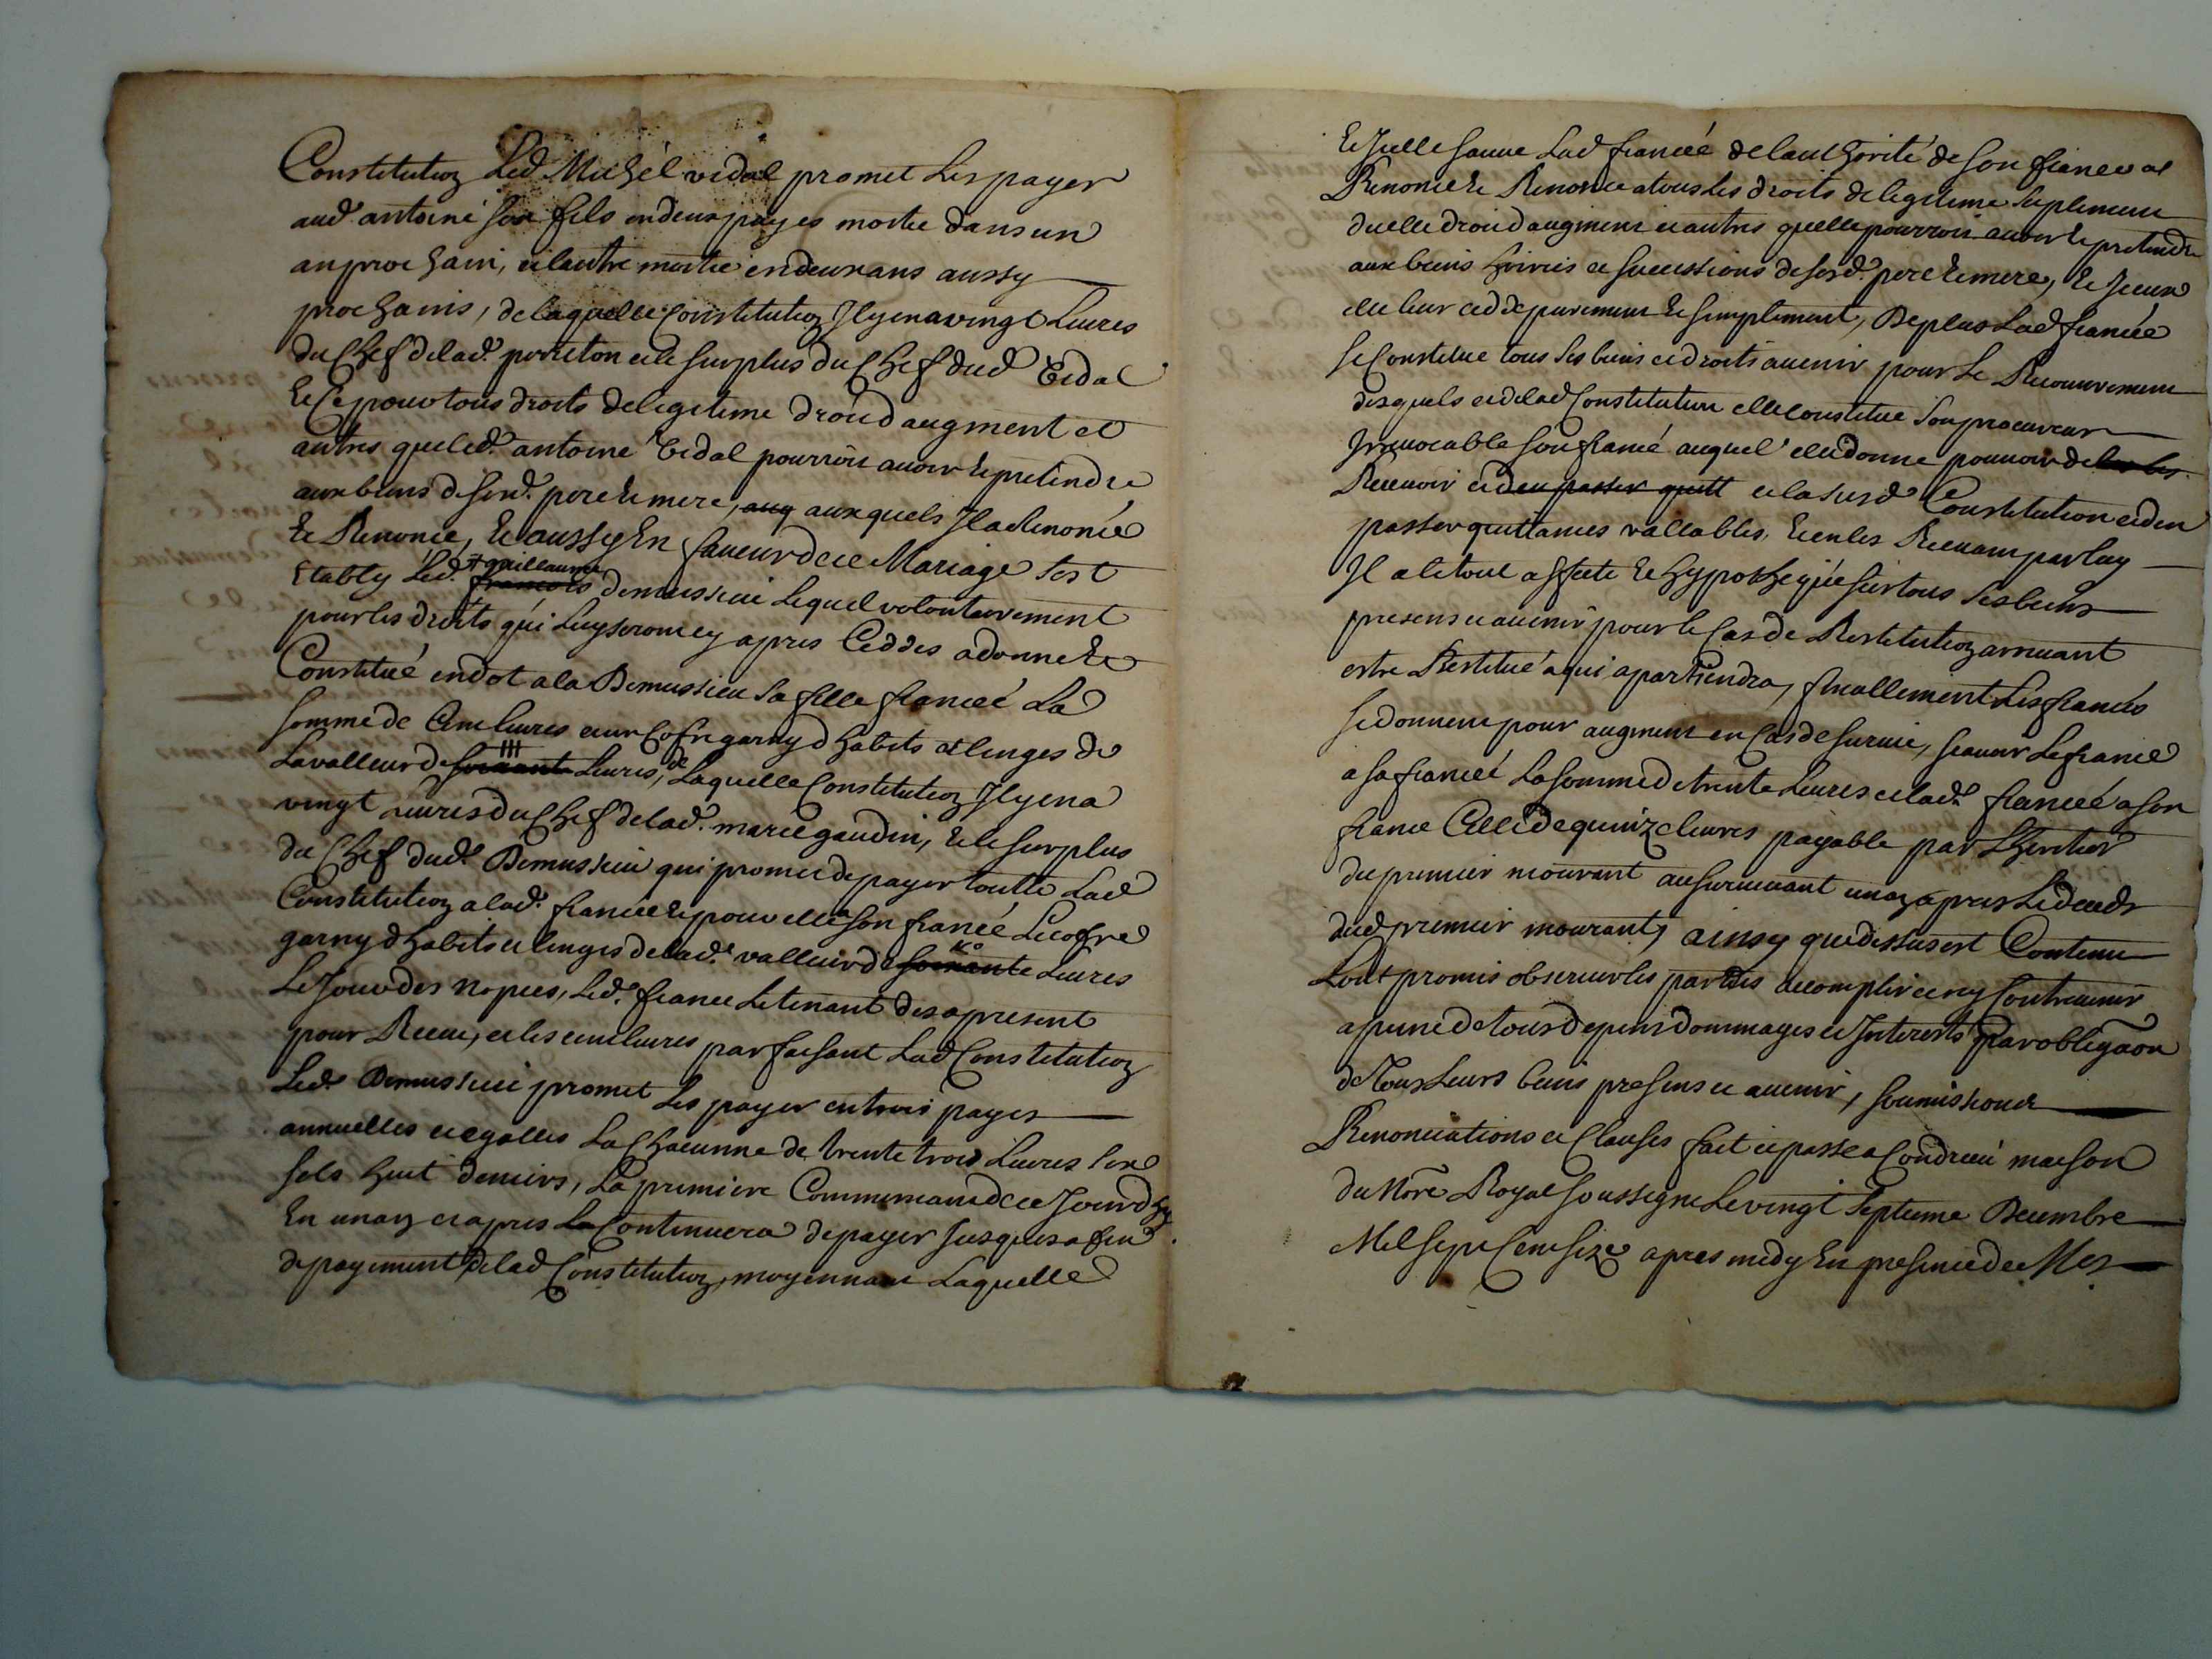 Constitution Led Michel vidal promet Les payer
aud. antoine son fils en deux payes moitie dans un
an prochain, et lautre moitie en deux ans aussy
prochains, de laquelle Constitution Il y en a vingt Livres
du Chef de lad. et le surplus du Chef dud Vidal
Et Ce pour tous droits de legitime droit daugment et
autres que led. antoine Vidal pourroit avoir et pretendre
aux biens de sesd. pere et mere, auq auxquels Il a Renoncé
et Renonce, et aussy En faveur de ce Mariage sest
Etably Led. francois guillaume Demussieu Lequel volontairement
pour les droits qui Luy seront cy apres Ceddes a donne et
Constitué en dot a la Demussieu sa fille fiancée La
somme de Cent livres et un Cofre garny dhabits et linges de
la valleur de soixante Livres, de Laquelle Constitution Il y en a
vingt livres du Chef de lad. marie gaudin, et le surplus
du Chef dud. Demussieu qui promet de payer toutte Lad
Constitution a lad. fiancée et pour elle a son fiancé, Le cofre
garny dhabits et linges de lad. valleur de soixante Livres
Le Jour des Nopces, Led. fiance Le tenant des a present
pour Receu, et les cent livres parfaisant Lad Constitution
Led. Demussieu promet Les payer en trois payes
annuelles et egalles La Chacunne de trente trois Livres six
sols huit deniers, La premiere Commencant de ce Jourdhuy
En un an et apres la Continuera de payer Jusques a fin
de payement de lad Constitution, moyennant Laquelle
Et Icelle sauve Lad fiancée de lauthorité de son fiance a
Renoncé et Renonce a tous les droits de legitime suplement
dicelle droit daugment et autres quelle pourroit avoir et pretendre
aux biens hoiries et successions de sesd. pere et mere, et Iceux
elle leur cedde purement et simplement, De plus Lad fiancée
se Constitue tous ses biens et droits a venir pour Le Recouvrement
desquels et de lad Constitution elle constitue son procureur
Irrevocable son fiancé auquel elle donne pouvoir de
Recevoir et den passer quitt et la susd. Constitution et den
passer quittances vallables, et en les Recevant par luy
Il a le tout affecté et hypothequée sur tous ses biens
presens et avenir pour le Cas de Restitution arrivant
estre Restitué a qui apartiendra, finallement Les fiancés
se donnent pour augment en Cas de survie, scavoir Le fiancé
a sa fiancée La somme de trente Livres et lad. fiancée a son
fiance Celle de quinze livres payable par Lheritier
du premier mourant au survivant un an apres Le deceds
dud premier mourant, ainsy que dessus est Contenu
Lont promis observer les parties accomplir et ny Contrevenir
a peine de tous depens dommages et Interests par obligaon
de Tous Leurs biens presens et avenir, soumissions
Renonciations et Clauses fait et passe a Condrieu maison
du Nore Royal soussigne Le vingt septieme Decembre
Mil sept Cent seize apres midy En presence de Mes